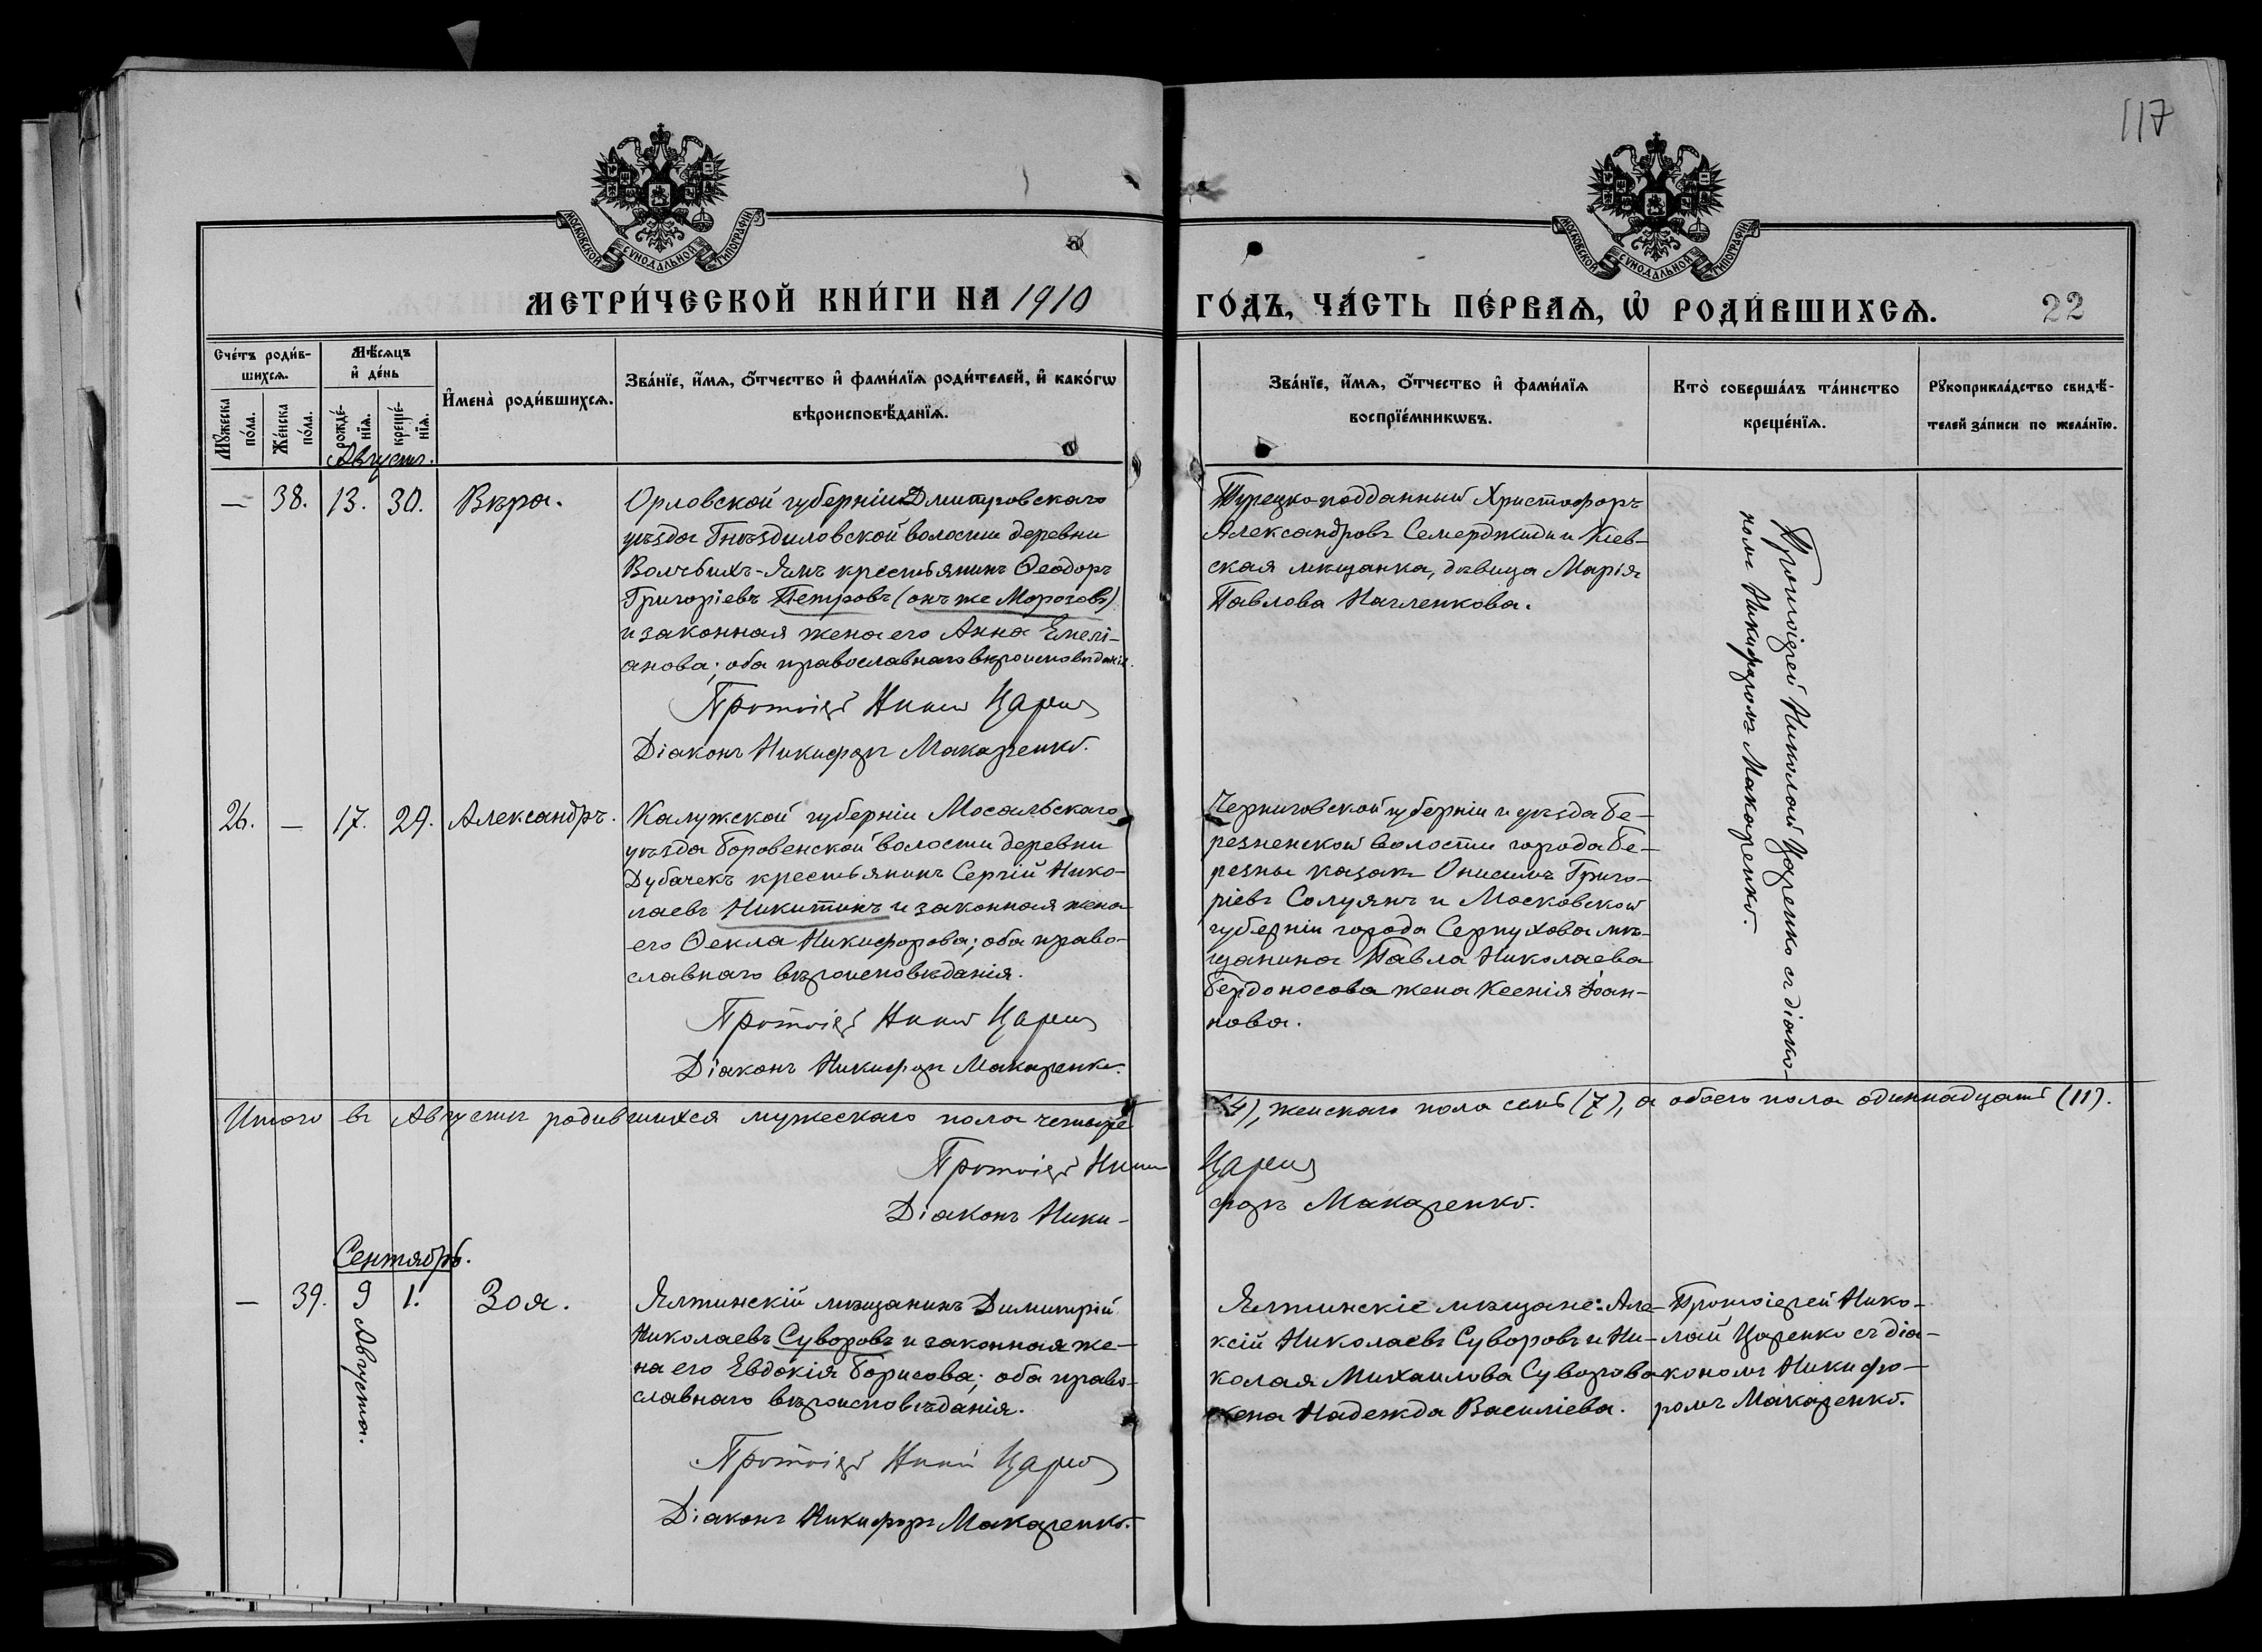 117
МОСКОВСКОЙ СѴНОДАЛЬНОЙ ТИПОГРАФІИ
МОСКОВСКОЙ СѴНОДАЛЬНОЙ ТИПОГРАФІИ
МЕТРИ́ЧЕСКОЙ КНИ́ГИ НА 1910
ГО́ДЪ, ЧА́СТЬ ПЕ́РВАѦ, Ѡ҆ РОДИ́ВШИХСѦ. 22
Сче́тъ роди́в-
шихсѧ.
Мꙋ́жеска
по́ла.
Же́нска
по́ла.
Мѣ́сѧцъ
и҆ де́нь
рожде́-
нїѧ.
креще́-
нїѧ.
И҆мена̀ роди́вшихсѧ.
Зва́нїе, и҆́мѧ, ѻ҆́тчество и҆ фами́лїѧ роди́телей, и҆ како́гѡ
вѣроисповѣ́данїѧ.
Зва́нїе, и҆́мѧ, ѻ҆́тчество и҆ фами́лїѧ
воспрїе́мникѡвъ.
Кто̀ соверша́лъ та́инство
креще́нїѧ.
Рꙋкоприкла́дство свидѣ́-
телей за́писи по жела́нїю.
Августъ.
— 38. 13. 30. Вѣра.
Орловской губерніи Дмитровскаго
уѣзда Гнѣздиловской волости деревни
Волчьихъ-Ямъ крестьянинъ Ѳеодоръ
Григоріевъ Петровъ (онъ же Морозовъ)
и законная жена его Анна Емелі-
анова; оба православнаго вѣроисповѣданія.
Протоіер Никол Царен
Діаконъ Никифоръ Макаренко.
Турецко-подданный Христофоръ
Александровъ Семерджиди и Кіев-
ская мѣщанка, дѣвица Марія
Павлова Нагленкова.
Протоіерей Николай Царенко съ діако-
номъ Никифоромъ Макаренко.
26. — 17. 29. Александръ.
Калужской губерніи Мосальскаго
уѣзда Боровенской волости деревни
Дубачекъ крестьянинъ Сергій Нико-
лаевъ Никитинъ и законная жена
его Ѳекла Никифорова; оба право-
славнаго вѣроисповѣданія.
Протоіер Никол Царен
Діаконъ Никифоръ Макаренко.
Черниговской губерніи и уѣзда Бе-
резненской волости города Бе-
резны казакъ Онисимъ Григо-
ріевъ Солуянъ и Московской
губерніи города Серпухова мѣ-
щанина Павла Николаева
Бердоносова жена Ксенія Іоан-
нова.
Итого въ Августѣ родившихся мужескаго пола четыре
(4), женскаго пола семь (7), а обоего пола одиннадцать (11).
Протоіер Никол Царен
Діаконъ Ники-
форъ Макаренко.
Сентябрь.
— 39. 9 Августа. 1. Зоя.
Ялтинскій мѣщанинъ Димитрій
Николаевъ Суворовъ и законная же-
на его Евдокія Борисова; оба право-
славнаго вѣроисповѣданія.
Протоіер Никол Царен
Діаконъ Никифоръ Макаренко.
Ялтинскіе мѣщане: Але-
ксій Николаевъ Суворовъ и Ни-
колая Михаилова Суворова
жена Надежда Василіева.
Протоіерей Нико-
лай Царенко съ діа-
кономъ Никифо-
ромъ Макаренко.